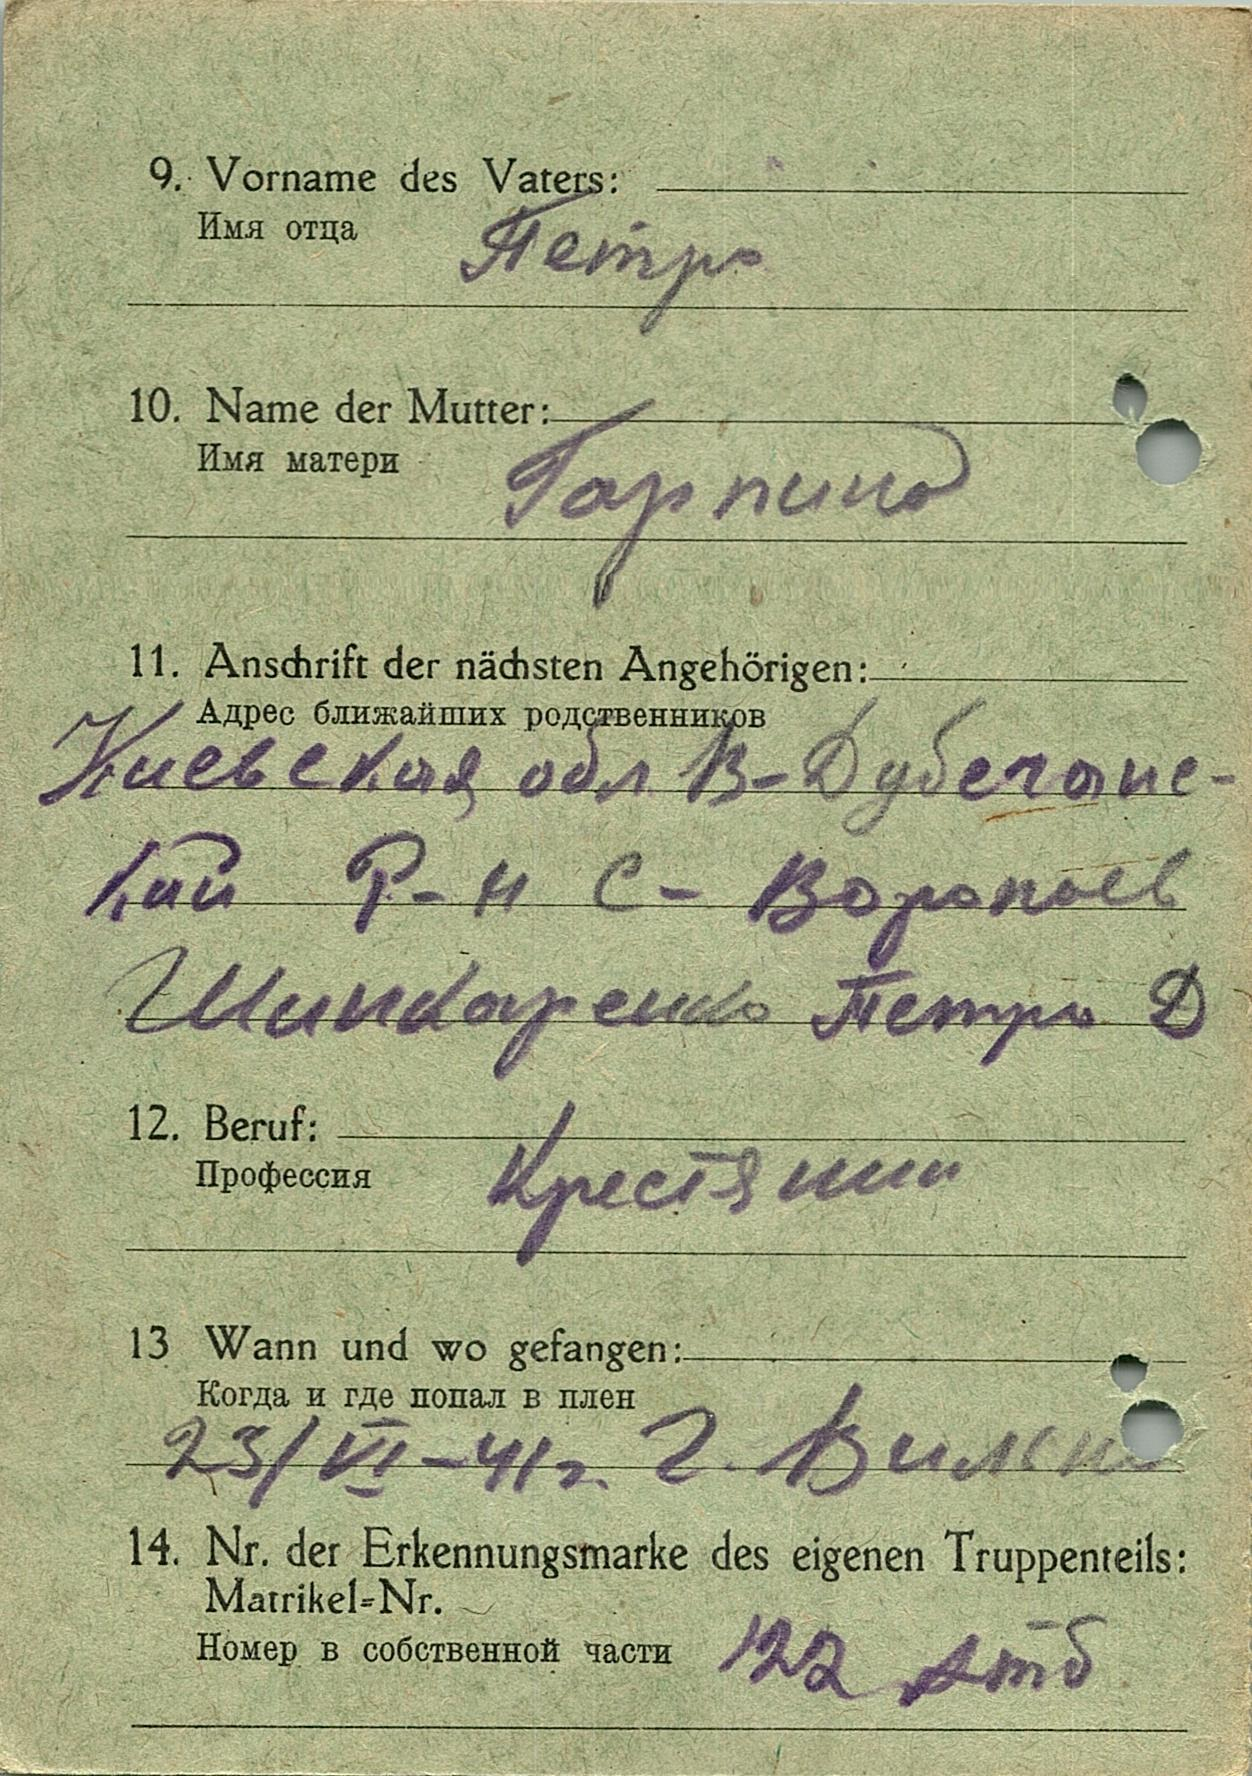 9. Vorname des Vaters:
Имя отца
Петро
10. Name der Mutter:
Имя матери
Гарпина
11. Anschrift der nächsten Angehörigen:
Адрес ближайших родственников
Киевская обл В-Дубечанс-
кий Р-н С-
Шинкаренко Петро Д
12. Beruf:
Профессия
Крестянин
13 Wann und wo gefangen:
Когда и где попал в плен
23/VI-41г. г. Вильно
14. Nr. der Erkennungsmarke des eigenen Truppenteils:
Matrikel=Nr.
Номер в собственной части
122